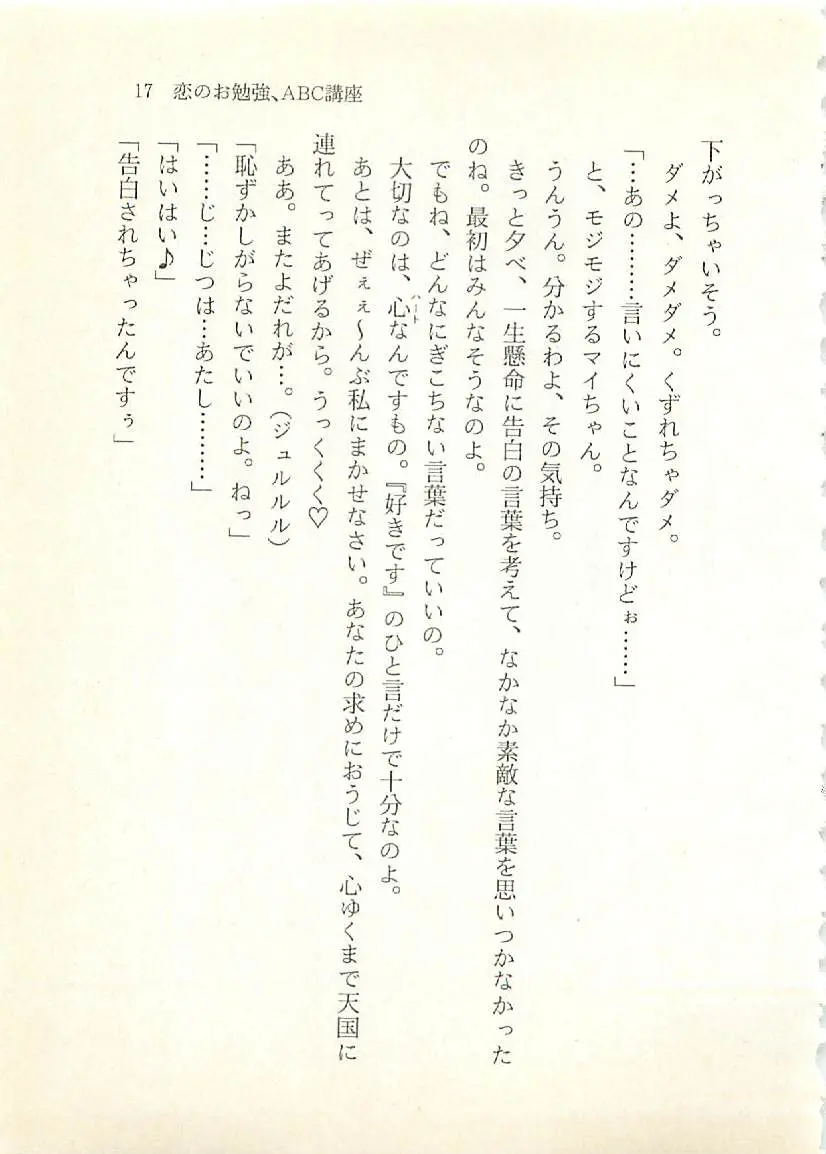 17 恋のお勉強、ABC講座
下がっちゃいそう。
ダメよ、ダメダメ。くずれちゃダメ。
「…あの………言いにくいことなんですけどぉ……」
と、モジモジするマイちゃん。
うんうん。分かるわよ、その気持ち。
きっと夕べ、一生懸命に告白の言葉を考えて、なかなか素敵な言葉を思いつかなかった
のね。最初はみんなそうなのよ。
でもね、どんなにぎこちない言葉だっていいの。
大切なのは、心なんですもの。『好きです』のひと言だけで十分なのよ。
ハート
あとは、ぜぇぇ〜んぶ私にまかせなさい。あなたの求めにおうじて、心ゆくまで天国に
連れてってあげるから。うっくくく♡
ああ。またよだれが…。（ジュルルル）
「恥ずかしがらないでいいのよ。ねっ」
「……じ…じつは…あたし………」
「はいはい♪」
「告白されちゃったんですぅ」